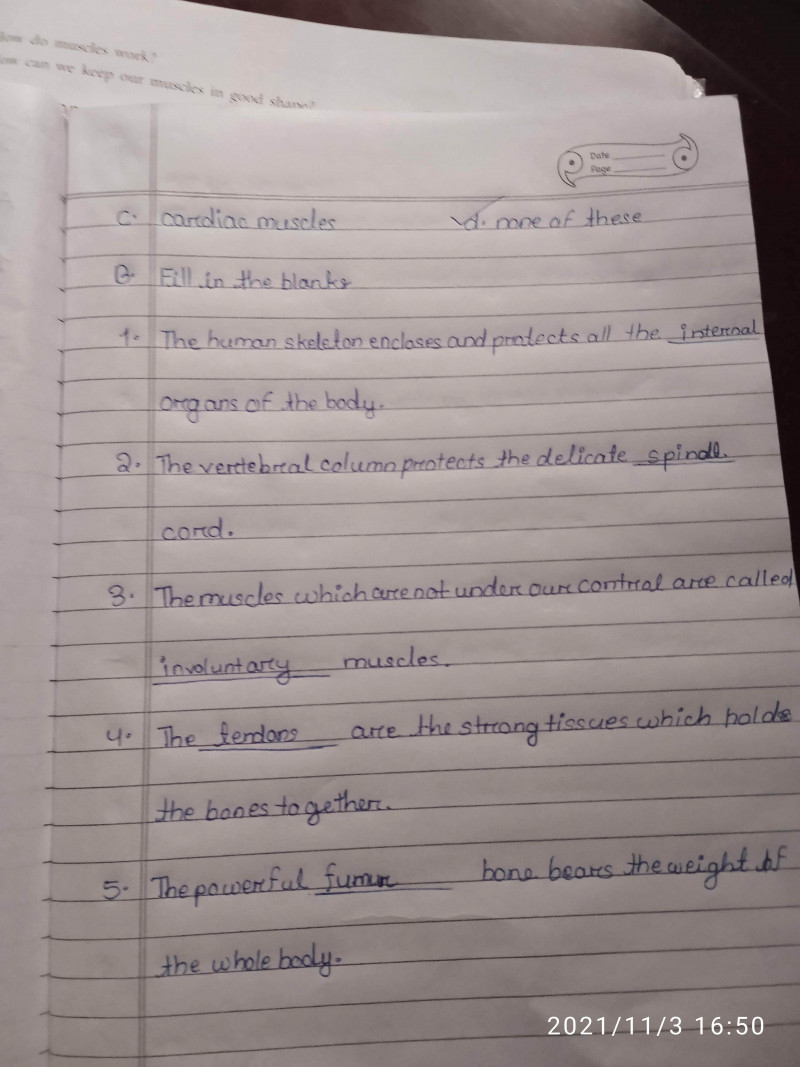 How do muscles work?
How can we keep our muscles in good shape?
Date
Page
C. cardiac muscles d. none of these
B. Fill in the blanks
1. The human skeleton encloses and protects all the internal
organs of the body.
2. The vertebral column protects the delicate spindl.
cord.
3. The muscles which are not under our control are called
involuntary muscles.
4. The tendons are the strong tissues which holds
the bones together.
5. The powerful fumur bone bears the weight of
the whole body.
2021/11/3 16:50